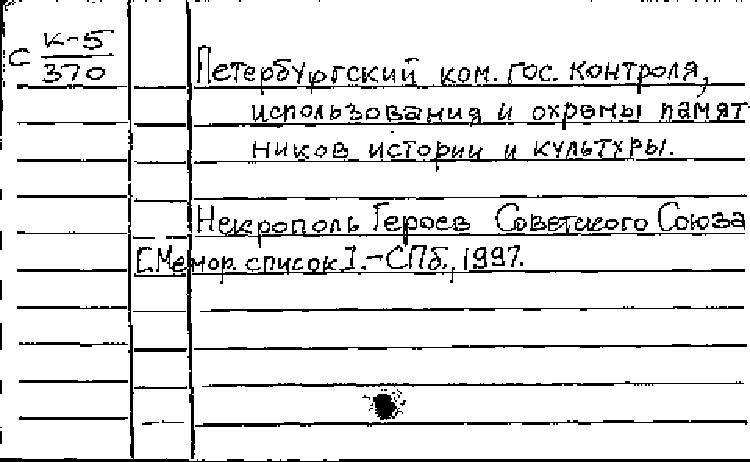 С К-5
370
Петербургский ком. гос. контроля,
использования и охраны памят
ников истории и культуры.
Некрополь Героев Советского Союза
[Мемор. список]. - СПб., 1997.